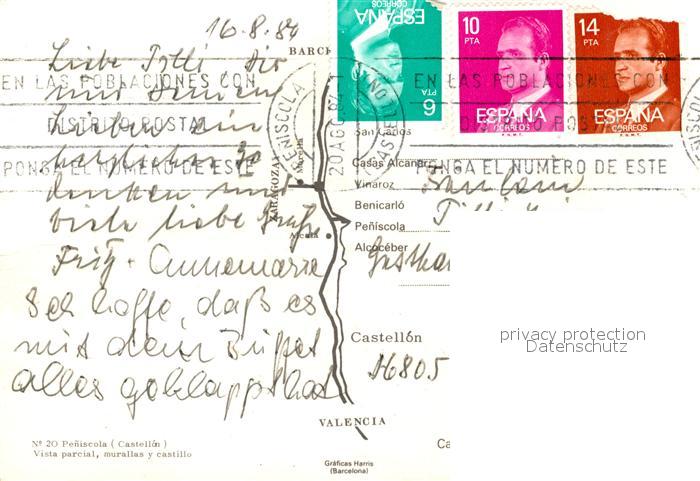 16.8.84
Liebe Tilli Dir
und Deinen
lieben ein
herzliches Ge
denken und
viele liebe Grüße
Fritz + Annemarie
Ich hoffe, daß es
mit dem Büffet
alles geklappt hat
Nº 20 Peñiscola ( Castellón )
Vista parcial, murallas y castillo
BARC
ZARAGOZA
Morella
San Carlos
Casas Alcanar
Vinaroz
Benicarló
Peñiscola
Alcocéber
Alcalá
Castellón
VALENCIA
Gráficas Harris
(Barcelona)
ESPAÑA
6
PTA
10
PTA
ESPAÑA
CORREOS
F.N.M.T.
14
PTA
ESPAÑA
CORREOS
F.N.M.T.
EN LAS POBLACIONES CON
DISTRITO POSTAL
PONGA EL NUMERO DE ESTE
PEÑISCOLA
20 AGO 84
(CASTELLON)
EN LAS POBLACIONES CON
DISTRITO POSTA
NGA EL NUMERO DE ESTE
Familie
Tilli
Gasthau
16805
Ca
privacy protection
Datenschutz